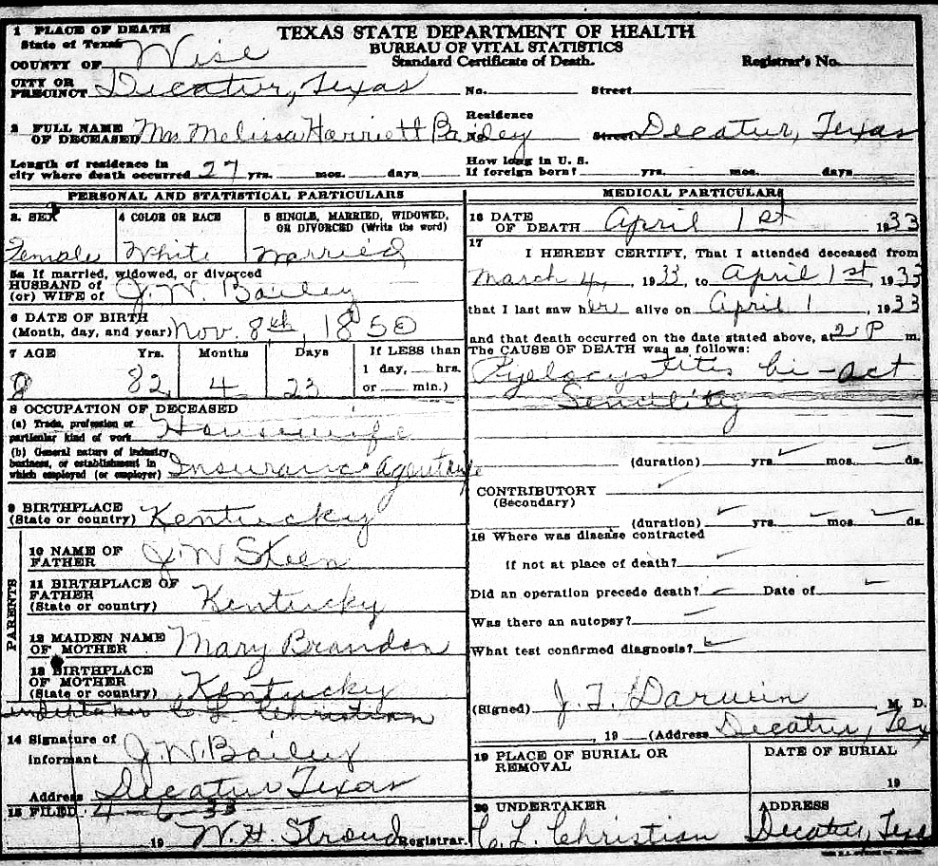 TEXAS STATE DEPARTMENT OF HEALTH
BUREAU OF VITAL STATISTICS
Standard Certificate of Death.
Registrar's No.
1 PLACE OF DEATH
State of Texas
COUNTY OF Wise
CITY OR PRECINCT Decatur, Texas No. Street
2 FULL NAME OF DECEASED Mrs Melissa Harriett Bailey
Residence No. Street Decatur, Texas
Length of residence in city where death occurred 27 yrs. mos. days
How long in U. S. If foreign born? yrs. mos. days
PERSONAL AND STATISTICAL PARTICULARS
3. SEX
Female
4 COLOR OR RACE
White
5 SINGLE, MARRIED, WIDOWED, OR DIVORCED (Write the word)
Married
5a If married, widowed, or divorced
HUSBAND of
(or) WIFE of J. W. Bailey
6 DATE OF BIRTH
(Month, day, and year) Nov. 8th, 1850
7 AGE Yrs. Months Days If LESS than
1 day, hrs.
or min.)
82 4 23
8 OCCUPATION OF DECEASED
(a) Trade, profession or
particular kind of work Housewife
(b) General nature of industry
business, or establishment in
which employed (or employer) Insurance Agent
9 BIRTHPLACE
(State or country) Kentucky
PARENTS
10 NAME OF FATHER J. W Skeen
11 BIRTHPLACE OF FATHER
(State or country) Kentucky
12 MAIDEN NAME OF MOTHER Mary Brandon
13 BIRTHPLACE OF MOTHER
(State or country) Kentucky
Undertaker C. L. Christian
14 Signature of Informant J. W. Bailey
Address Decatur Texas
15 FILED 4-6-33
19 W. H. Stroud Registrar.
MEDICAL PARTICULARS
16 DATE OF DEATH April 1st 1933
17
I HEREBY CERTIFY, That I attended deceased from
March 4, 1933, to April 1st, 1933
that I last saw her alive on April 1 1933
and that death occurred on the date stated above, at 2 P m.
The CAUSE OF DEATH was as follows:
Senility
(duration) yrs. mos. ds.
CONTRIBUTORY
(Secondary)
(duration) yrs. mos. ds.
18 Where was disease contracted
if not at place of death?
Did an operation precede death? Date of
Was there an autopsy?
What test confirmed diagnosis?
(Signed) J. T. Darwin M. D.
, 19 (Address Decatur, Tex
19 PLACE OF BURIAL OR REMOVAL
DATE OF BURIAL
19
20 UNDERTAKER
C. L. Christian
ADDRESS
Decatur, Texas